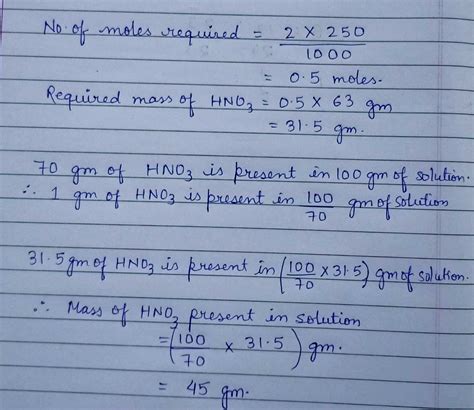 No. of moles required = 2 × 250 / 1000
= 0.5 moles.
Required mass of HNO3 = 0.5 × 63 gm
= 31.5 gm.
70 gm of HNO3 is present in 100 gm of solution.
∴ 1 gm of HNO3 is present in 100/70 gm of solution
31.5 gm of HNO3 is present in (100/70 × 31.5) gm of solution.
∴ Mass of HNO3 present in solution
= (100/70 × 31.5) gm.
= 45 gm.